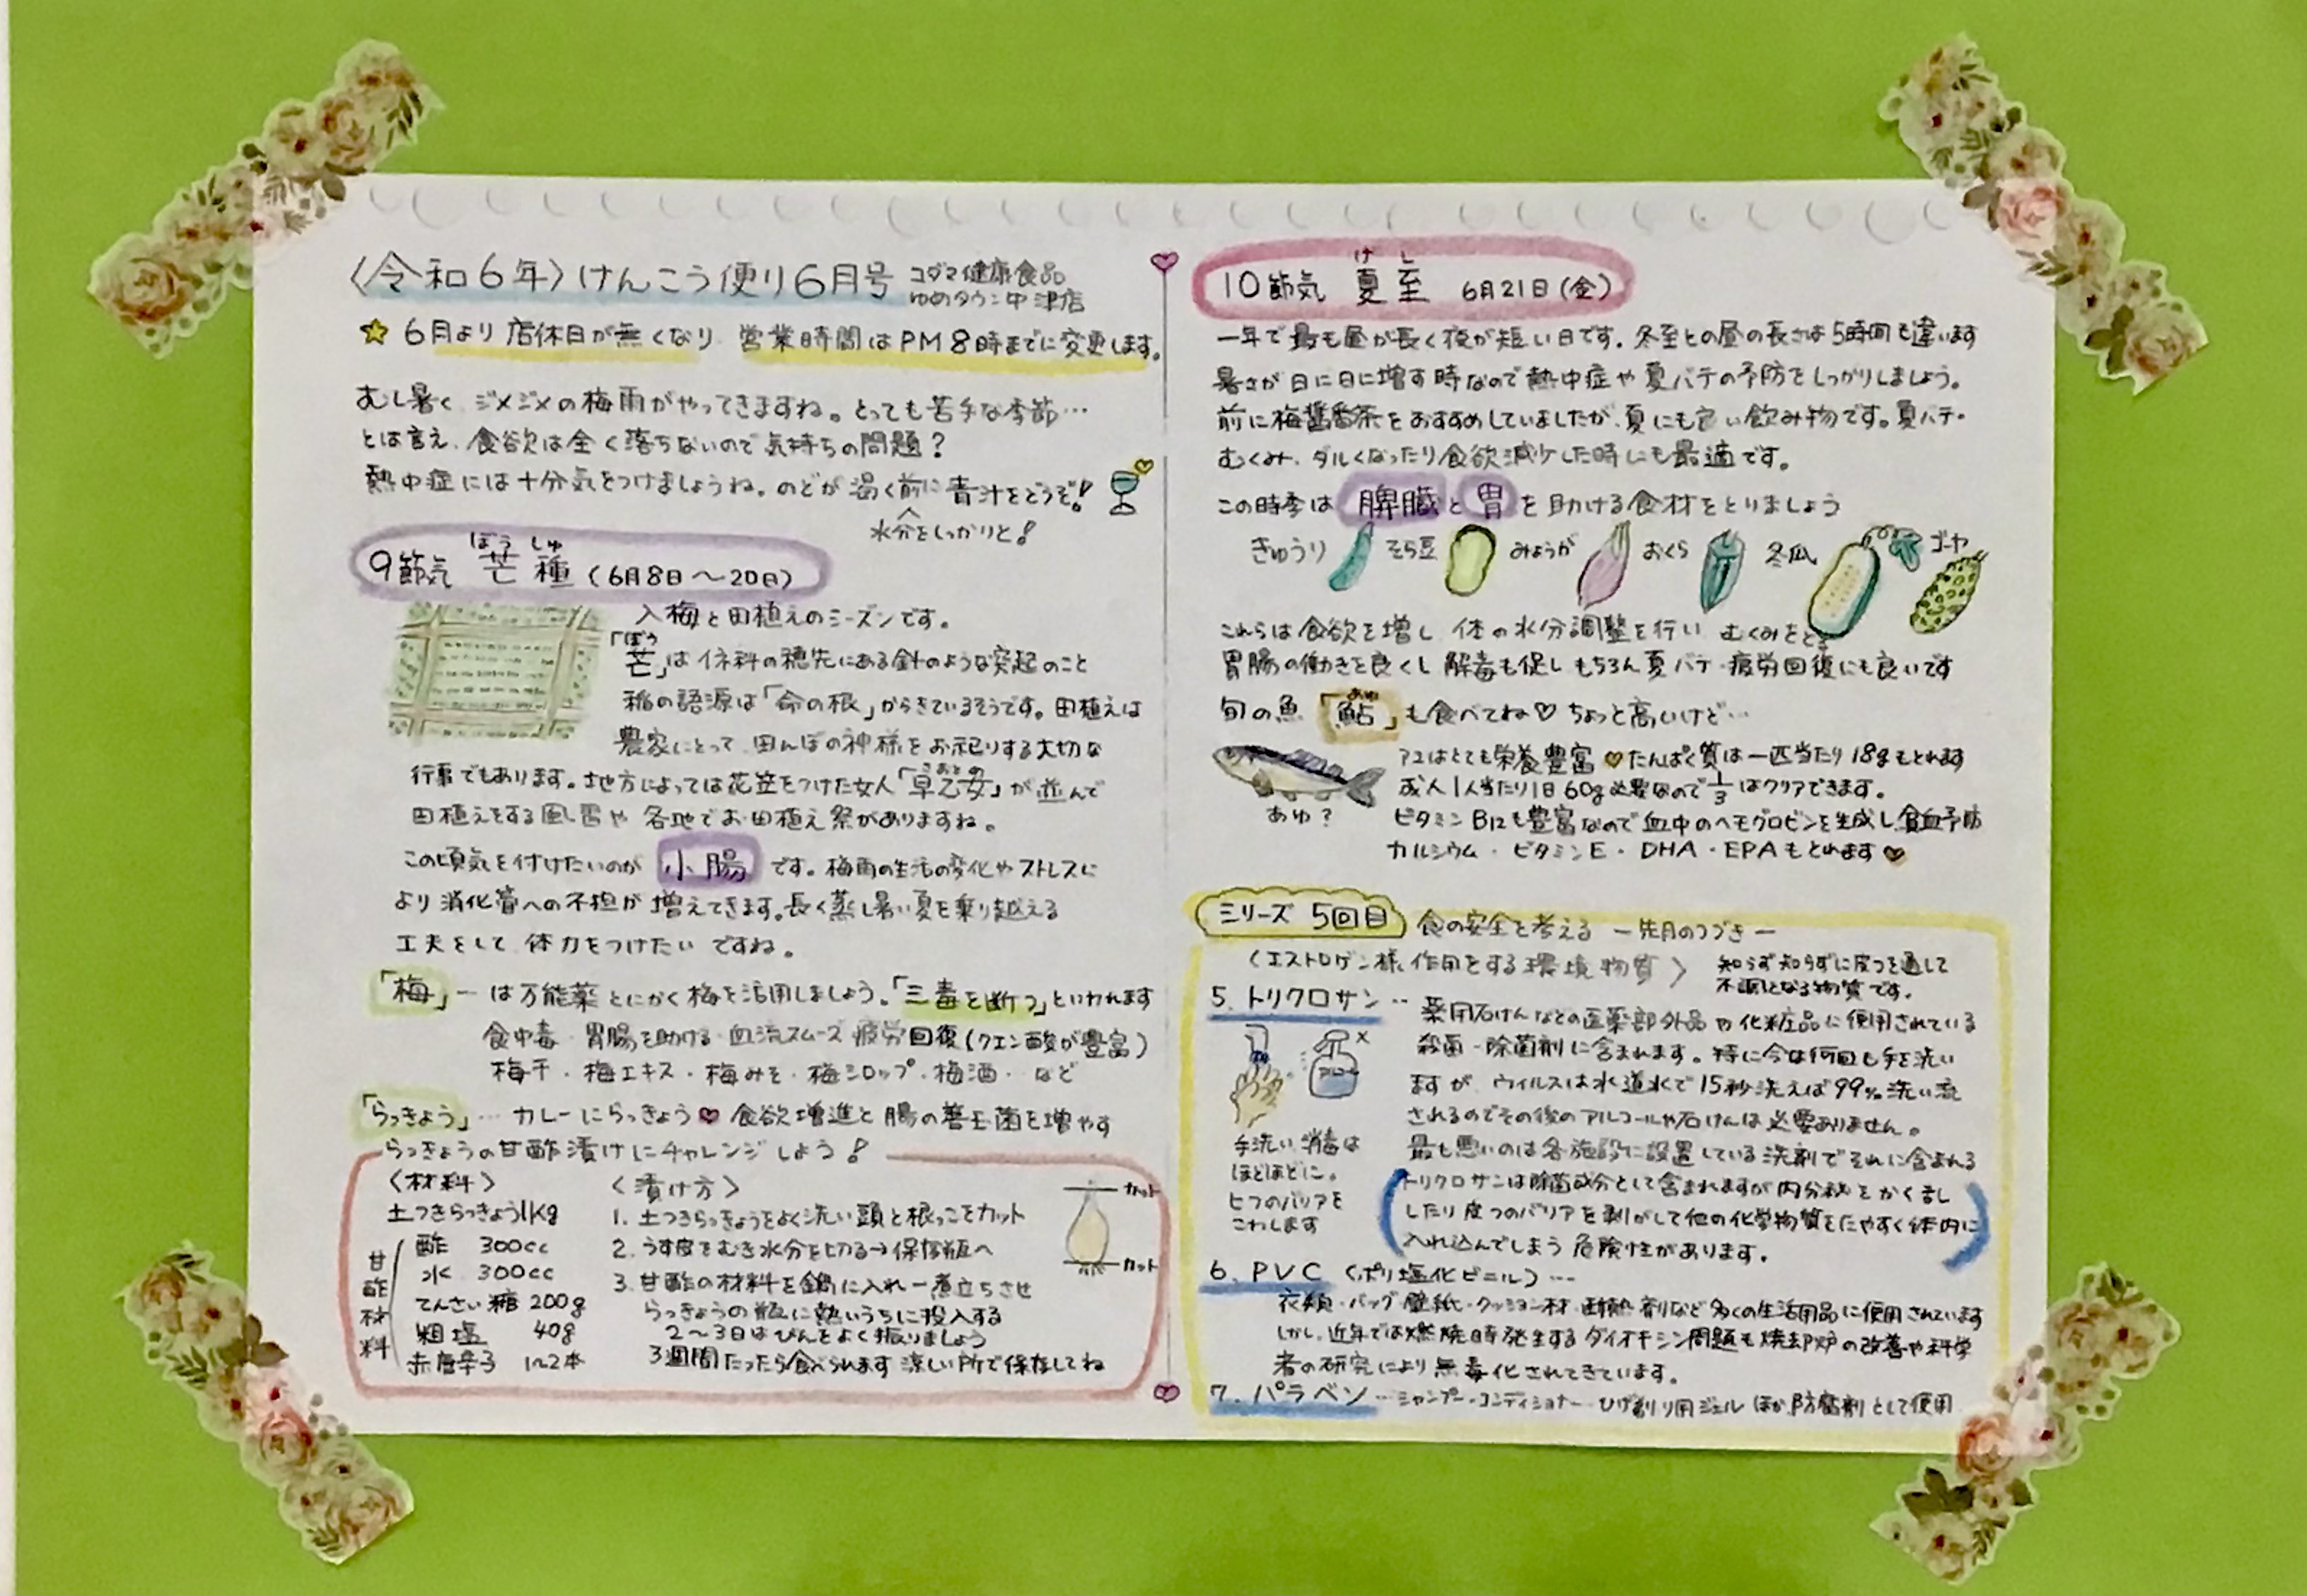 〈令和6年〉けんこう便り6月号 コダマ健康食品
ゆめタウン中津店
☆ 6月より 店休日が無くなり 営業時間はPM8時までに変更します。
むし暑く ジメジメの梅雨がやってきますね。とっても苦手な季節…
とは言え、食欲は全く落ちないので気持ちの問題?
熱中症には十分気をつけましょうね。のどが渇く前に青汁をどうぞ!
水分をしっかりと!
9節気 芒種 (6月8日〜20日)
ぼう しゅ
入梅と田植えのシーズンです。
「芒」は イネ科の穂先にある針のような突起のこと
ぼう
稲の語源は「命の根」からきているそうです。田植えは
農家にとって 田んぼの神様をお祀りする大切な
行事でもあります。地方によっては花笠をつけた女人「早乙女」が並んで
さおとめ
田植えをする風習や 各地でお田植え祭がありますね。
この頃気を付けたいのが 小腸 です。梅雨の生活の変化やストレスに
より 消化管への不担が 増えてきます。長く蒸し暑い夏を乗り越える
工夫をして 体力をつけたい ですね。
「梅」ー は万能薬 とにかく梅を活用しましょう。「三毒を断つ」といわれます
食中毒・胃腸を助ける・血流スムーズ 疲労回復(クエン酸が豊富)
梅干・梅エキス・梅みそ・梅シロップ・梅酒・・など
「らっきょう」… カレーにらっきょう♥ 食欲増進と腸の善玉菌を増やす
らっきょうの甘酢漬けにチャレンジしよう!
〈材料〉
土つきらっきょう1kg
甘酢材料
酢 300cc
水 300cc
てんさい糖 200g
粗塩 40g
赤唐辛子 1〜2本
〈漬け方〉
1. 土つきらっきょうをよく洗い頭と根っこをカット
2. うす皮をむき水分を切る→保存瓶へ
3. 甘酢の材料を鍋に入れ一煮立ちさせ
らっきょうの瓶に熱いうちに投入する
2〜3日はびんをよく振りましょう
3週間たったら食べられます 涼しい所で保存してね
カット
カット
10節気 夏至 6月21日(金)
げ し
一年で最も昼が長く夜が短い日です。冬至との昼の長さは5時間も違います
暑さが日に日に増す時なので熱中症や夏バテの予防をしっかりしましょう。
前に梅醤番茶をおすすめしていましたが、夏にも良い飲み物です。夏バテ・
むくみ、ダルくなったり食欲減少した時にも最適です。
この時季は 脾臓と胃を助ける食材をとりましょう
きゅうり そら豆 みょうが おくら 冬瓜 ゴーヤ
これらは 食欲を増し 体の水分調整を行い むくみをとる
胃腸の働きを良くし 解毒も促し もちろん夏バテ・疲労回復にも良いです
旬の魚「鮎」も食べてね♡ ちょっと高いけど…
あゆ
アユはとても栄養豊富♥たんぱく質は一匹当たり18gもとれます
成人1人当たり1日60g必要なので1/3はクリアできます。
あゆ?
ビタミンB12も豊富なので血中のヘモグロビンを生成し貧血予防
カルシウム・ビタミンE・DHA・EPAもとれます♥
ミリーズ 5回目 食の安全を考える ー先月のつづきー
〈エストロゲン様 作用をする環境物質〉 知らず知らずに皮フを通して
不調となる物質です。
5. トリクロサン…薬用石けんなどの医薬部外品や化粧品に使用されている
殺菌・除菌剤に含まれます。特に今は何回も手を洗い
ますが、ウィルスは水道水で15秒洗えば99%洗い流
されるのでその後のアルコールや石けんは必要ありません。
最も悪いのは各施設に設置している洗剤でそれに含まれる
トリクロサンは除菌成分として含まれますが内分泌をかく乱
したり皮フのバリアを剥がして他の化学物質をたやすく体内に
入れ込んでしまう危険性があります。
手洗い消毒は
ほどほどに。
ヒフのバリアを
こわします
6. PVC (ポリ塩化ビニル)…
衣類・バッグ・壁紙・クッション材・断熱剤など多くの生活用品に使用されています
しかし、近年では燃焼時発生するダイオキシン問題も焼却炉の改善や科学
者の研究により無毒化されてきています。
7. パラベン…シャンプー・コンディショナー・ひげ剃り用ジェル ほか防腐剤として使用